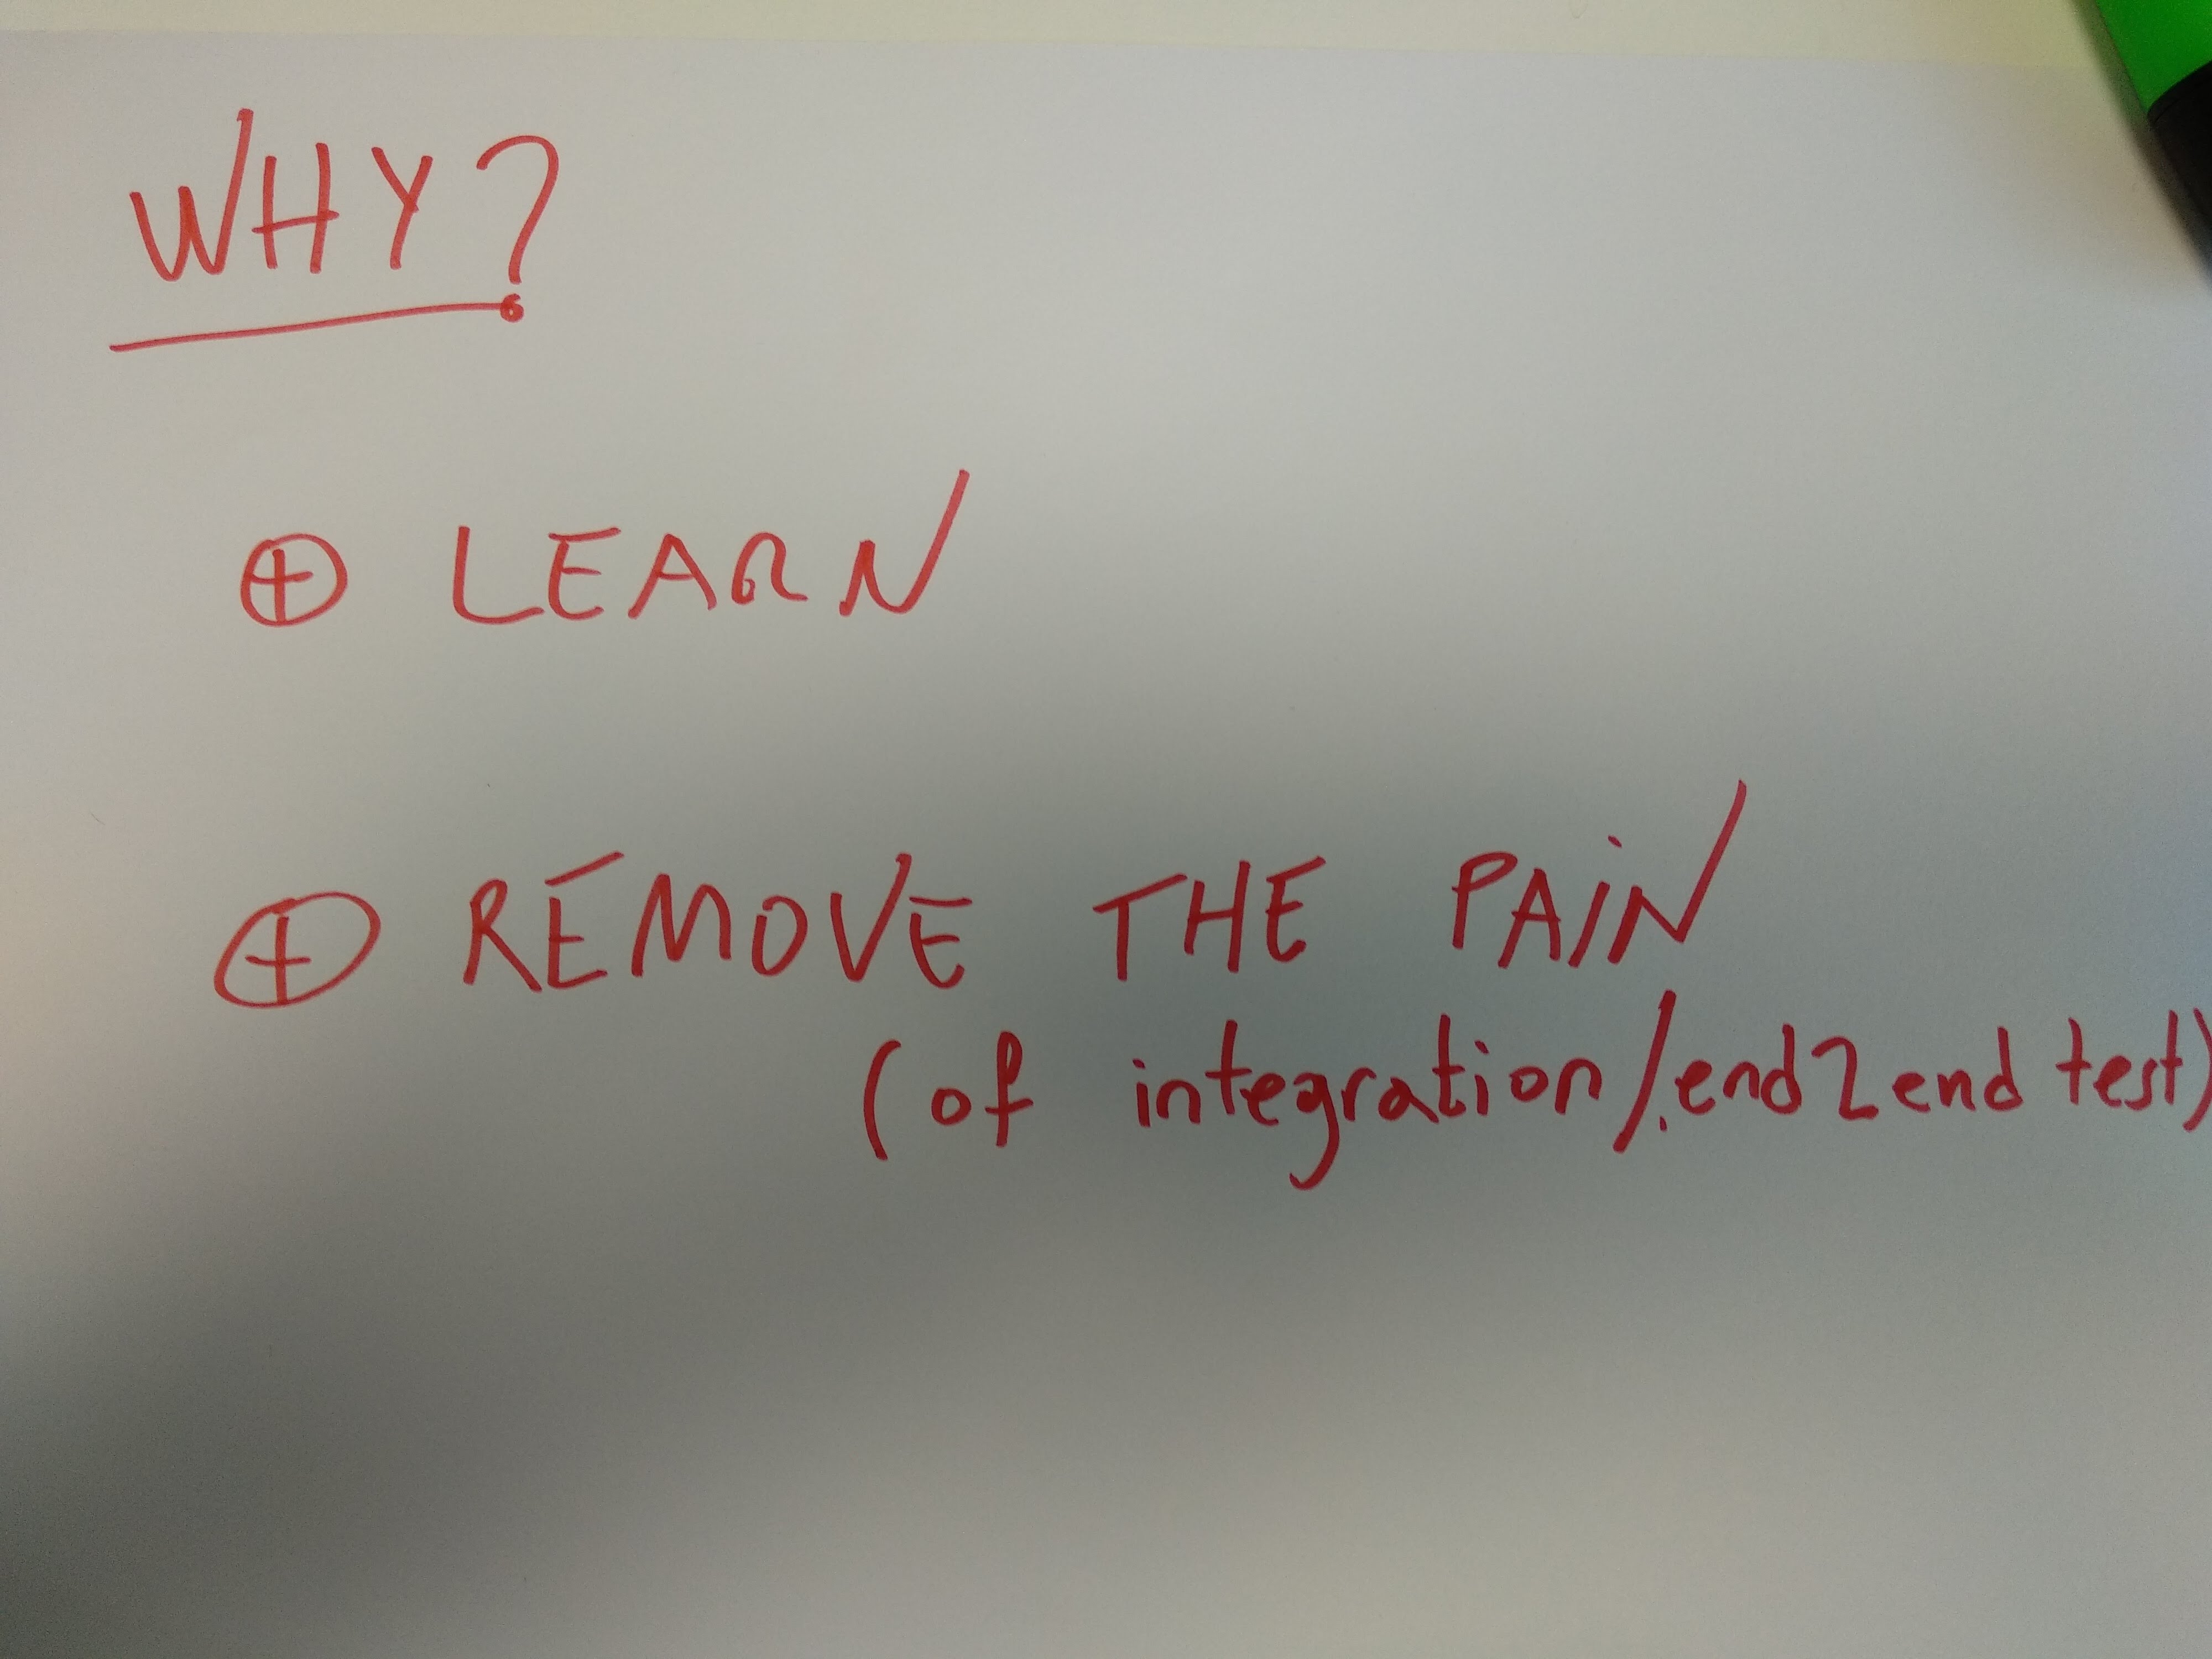 WHY?
⊕ LEARN
⊕ REMOVE THE PAiN
(of integration/.end2end test)